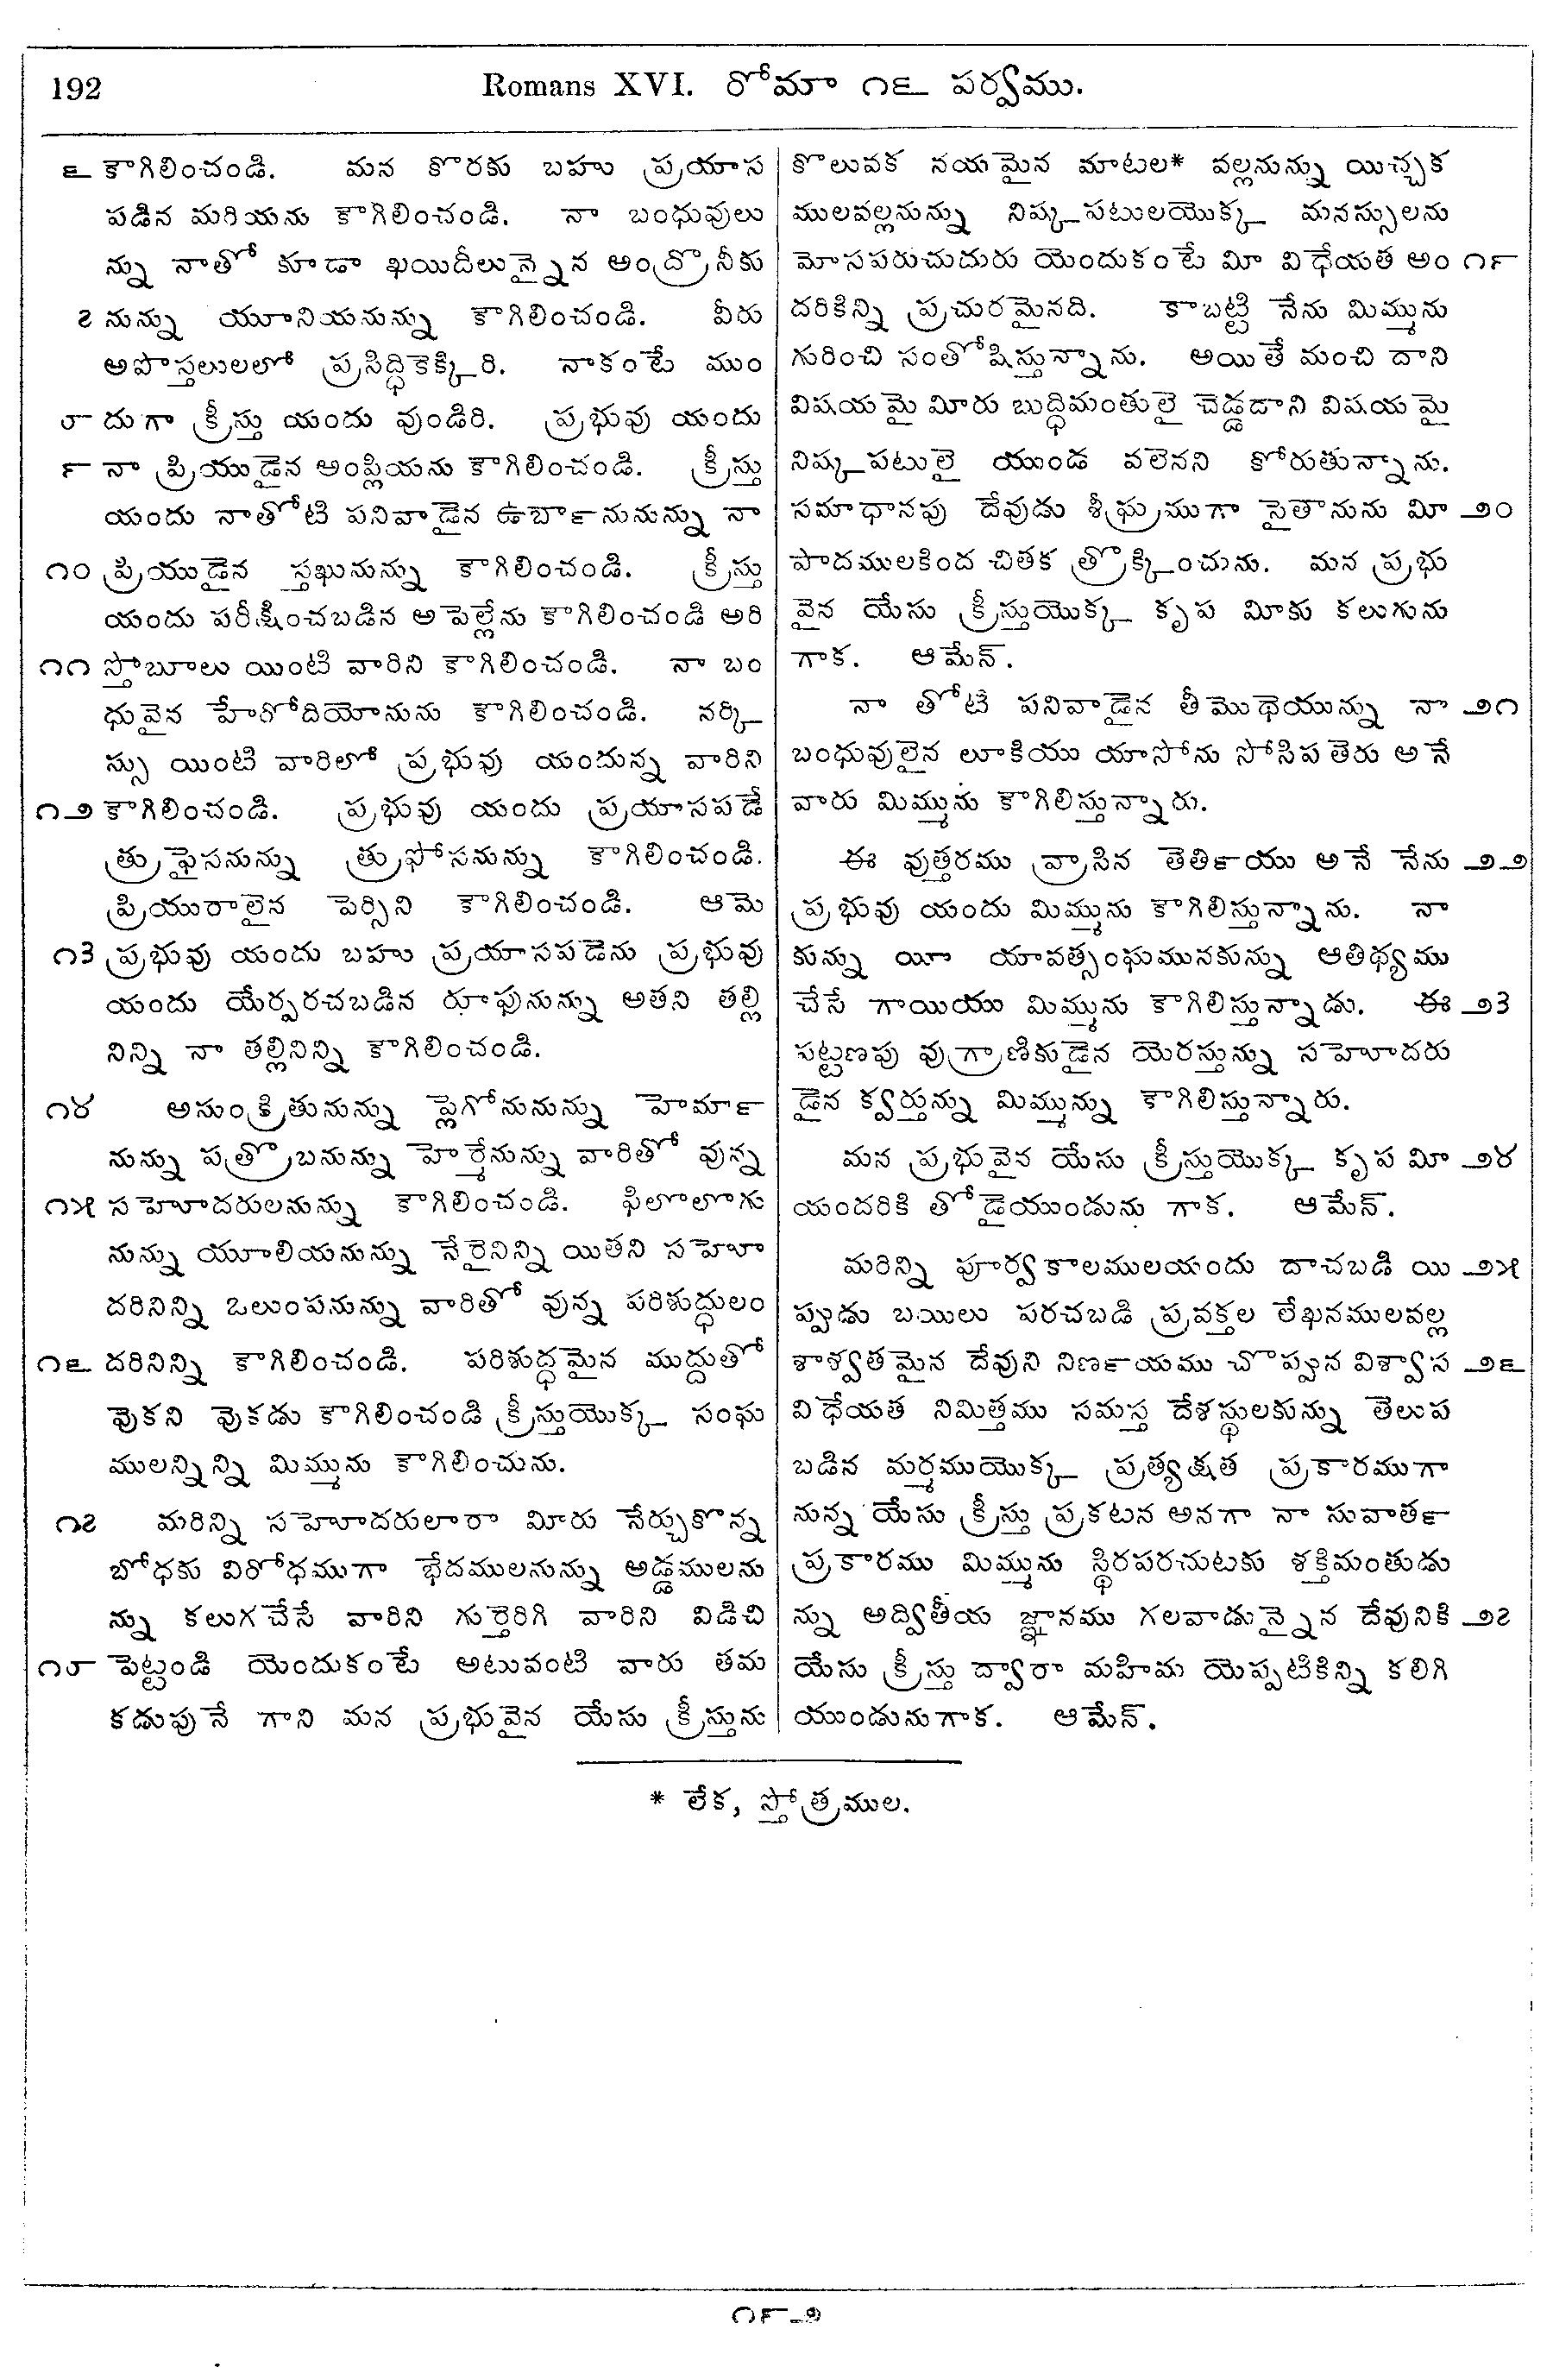 192
Romans XVI. రోమా ౧౬ పర్వము.
౬ కౌగిలించండి. మన కొరకు బహు ప్రయాస
పడిన మరియను కౌగిలించండి. నా బంధువులు
న్ను నాతో కూడా ఖయిదీలున్నైన అంద్రొనీకు
౭ నున్ను యూనియనున్ను కౌగిలించండి. వీరు
అపొస్తలులలో ప్రసిద్ధికెక్కిరి. నాకంటే ముం
౮ దుగా క్రీస్తు యందు వుండిరి. ప్రభువు యందు
౯ నా ప్రియుడైన అంప్లియను కౌగిలించండి. క్రీస్తు
యందు నాతోటి పనివాడైన ఉబా౯నునున్ను నా
౧౦ ప్రియుడైన స్తఖునున్ను కౌగిలించండి. క్రీస్తు
యందు పరీక్షించబడిన అపెల్లేను కౌగిలించండి అరి
౧౧ స్తోబూలు యింటి వారిని కౌగిలించండి. నా బం
ధువైన హేరోదియోనును కౌగిలించండి. నర్కి
స్సు యింటి వారిలో ప్రభువు యందున్న వారిని
౧౨ కౌగిలించండి. ప్రభువు యందు ప్రయాసపడే
త్రుఫైనసనున్ను త్రుఫోసనున్ను కౌగిలించండి.
ప్రియురాలైన పెర్సిని కౌగిలించండి. ఆమె
౧౩ ప్రభువు యందు బహు ప్రయాసపడెను ప్రభువు
యందు యేర్పరచబడిన రూఫునున్ను అతని తల్లి
నిన్ని నా తల్లినిన్ని కౌగిలించండి.
౧౪ అసుంక్రితునున్ను ప్లెగోనునున్ను హెమా౯
నున్ను పత్రొబనున్ను హెర్మేనున్ను వారితో వున్న
౧౫ సహోదరులనున్ను కౌగిలించండి. ఫిలొలొగు
నున్ను యూలియనున్ను నేరైనిన్ని యితని సహో
దరినిన్ని ఒలుంపనున్ను వారితో వున్న పరిశుద్ధులం
౧౬ దరినిన్ని కౌగిలించండి. పరిశుద్ధమైన ముద్దుతో
వొకని వొకడు కౌగిలించండి క్రీస్తుయొక్క సంఘ
ములన్నిన్ని మిమ్మును కౌగిలించును.
౧౭ మరిన్ని సహోదరులారా మీరు నేర్చుకొన్న
బోధకు విరోధముగా భేదములనున్ను అడ్డములను
న్ను కలుగచేసే వారిని గుర్తెరిగి వారిని విడిచి
౧౮ పెట్టండి యెందుకంటే అటువంటి వారు తమ
కడుపునే గాని మన ప్రభువైన యేసు క్రీస్తును
కొలువక నయమైన మాటల* వల్లనున్ను యిచ్చక
ములవల్లనున్ను నిష్కపటులయొక్క మనస్సులను
మోసపరుచుదురు యెందుకంటే మీ విధేయత అం ౧౯
దరికిన్ని ప్రచురమైనది. కాబట్టి నేను మిమ్మును
గురించి సంతోషిస్తున్నాను. అయితే మంచి దాని
విషయమై మీరు బుద్ధిమంతులై చెడ్డదాని విషయమై
నిష్కపటులై యుండ వలెనని కోరుతున్నాను.
సమాధానపు దేవుడు శీఘ్రముగా సైతానును మీ ౨౦
పాదములకింద చితక త్రొక్కించును. మన ప్రభు
వైన యేసు క్రీస్తుయొక్క కృప మీకు కలుగును
గాక. ఆమేన్.
నా తోటి పనివాడైన తీమొథెయున్ను నా ౨౧
బంధువులైన లూకియు యాసోను సోసిపతెరు అనే
వారు మిమ్మును కౌగిలిస్తున్నారు.
ఈ వుత్తరము వ్రాసిన తెతి౯యు అనే నేను ౨౨
ప్రభువు యందు మిమ్మును కౌగిలిస్తున్నాను. నా
కున్ను యీ యావత్సంఘమునకున్ను ఆతిథ్యము
చేసే గాయియు మిమ్మును కౌగిలిస్తున్నాడు. ఈ ౨౩
పట్టణపు వుగ్రాణికుడైన యెరస్తున్ను సహోదరు
డైన క్వర్తున్ను మిమ్మున్ను కౌగిలిస్తున్నారు.
మన ప్రభువైన యేసు క్రీస్తుయొక్క కృప మీ ౨౪
యందరికి తోడైయుండును గాక. ఆమేన్.
మరిన్ని పూర్వకాలములయందు దాచబడి యి ౨౫
ప్పుడు బయిలు పరచబడి ప్రవక్తల లేఖనములవల్ల
శాశ్వతమైన దేవుని నిణ౯యము చొప్పున విశ్వాస ౨౬
విధేయత నిమిత్తము సమస్త దేశస్థులకున్ను తెలుప
బడిన మర్మముయొక్క ప్రత్యక్షత ప్రకారముగా
నున్న యేసు క్రీస్తు ప్రకటన అనగా నా సువాత౯
ప్రకారము మిమ్మును స్థిరపరచుటకు శక్తిమంతుడు
న్ను అద్వితీయ జ్ఞానము గలవాడున్నైన దేవునికి ౨౭
యేసు క్రీస్తు ద్వారా మహిమ యెప్పటికిన్ని కలిగి
యుండునుగాక. ఆమేన్.
* లేక, స్తోత్రముల.
౧౯౨